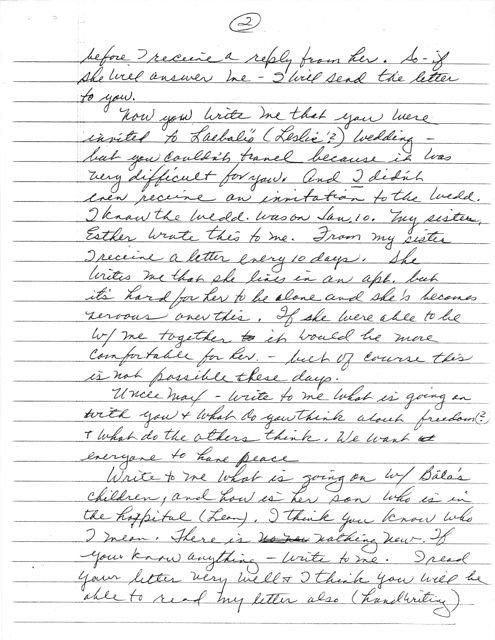 2
before I receive a reply from her. So - if
she will answer me - I will send the letter
to you.
Now you write me that you were
invited to Laebale's (Leslie?) wedding -
but you couldn't travel because it was
very difficult for you. And I didn't
even receive an invitation to the Wedd.
I know the wedd. was on Jan, 10. My sister,
Esther wrote this to me. From my sister
I receive a letter every 10 days. She
writes me that she lives in an apt. but
it's hard for her to be alone and she's becomes
nervous over this. If she were able to be
w/ me together it would be more
comfortable for her. - but of course this
is not possible these days.
Uncle Max - write to me what is going on
with you + what do you think about freedom(?)
+ what do the others think. We want
everyone to have peace
Write to me what is going on w/ Bala's
children, and how is her son who is in
the hospital (Leon). I think you know who
I mean. There is nothing new. If
you know anything - write to me. I read
your letter very well + I think you will be
able to read my letter also (handwriting)